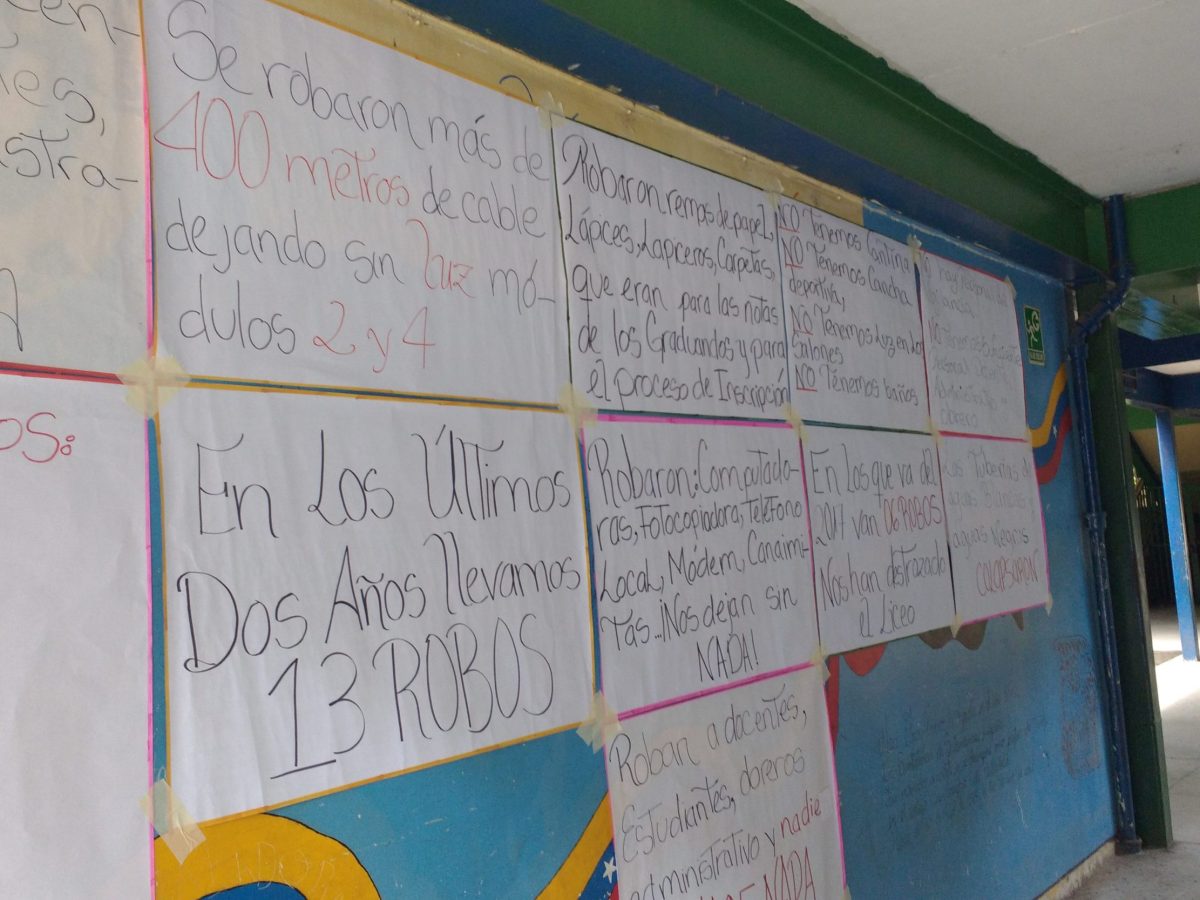 Se robaron más de
400 metros de cable
dejando sin luz mó-
dulos 2 y 4
Robaron remos de papel,
Lápices, Lapiceros, Carpetas,
que eran para las notas
de los Graduandos y para
él proceso de Inscripción
NO Tenemos Cantina
NO Tenemos Cancha
deportiva,
NO Tenemos Luz en los
Salones
NO Tenemos baños
No hay personal de
Administrativo
obrero
OS:
En Los Últimos
Dos Años llevamos
13 ROBOS
Robaron: Computado-
ras, Fotocopiadora, Teléfono
Local, Módem, Canaimi-
tas...¡Nos dejan sin
NADA!
En los que va del
2017 van 06 ROBOS
Nos han destrozado
el Liceo
Las Tuberías de
aguas Blancas y
aguas Negras
COLAPSARON
Roban a docentes,
Estudiantes, obreros
administrativo y nadie
NADA